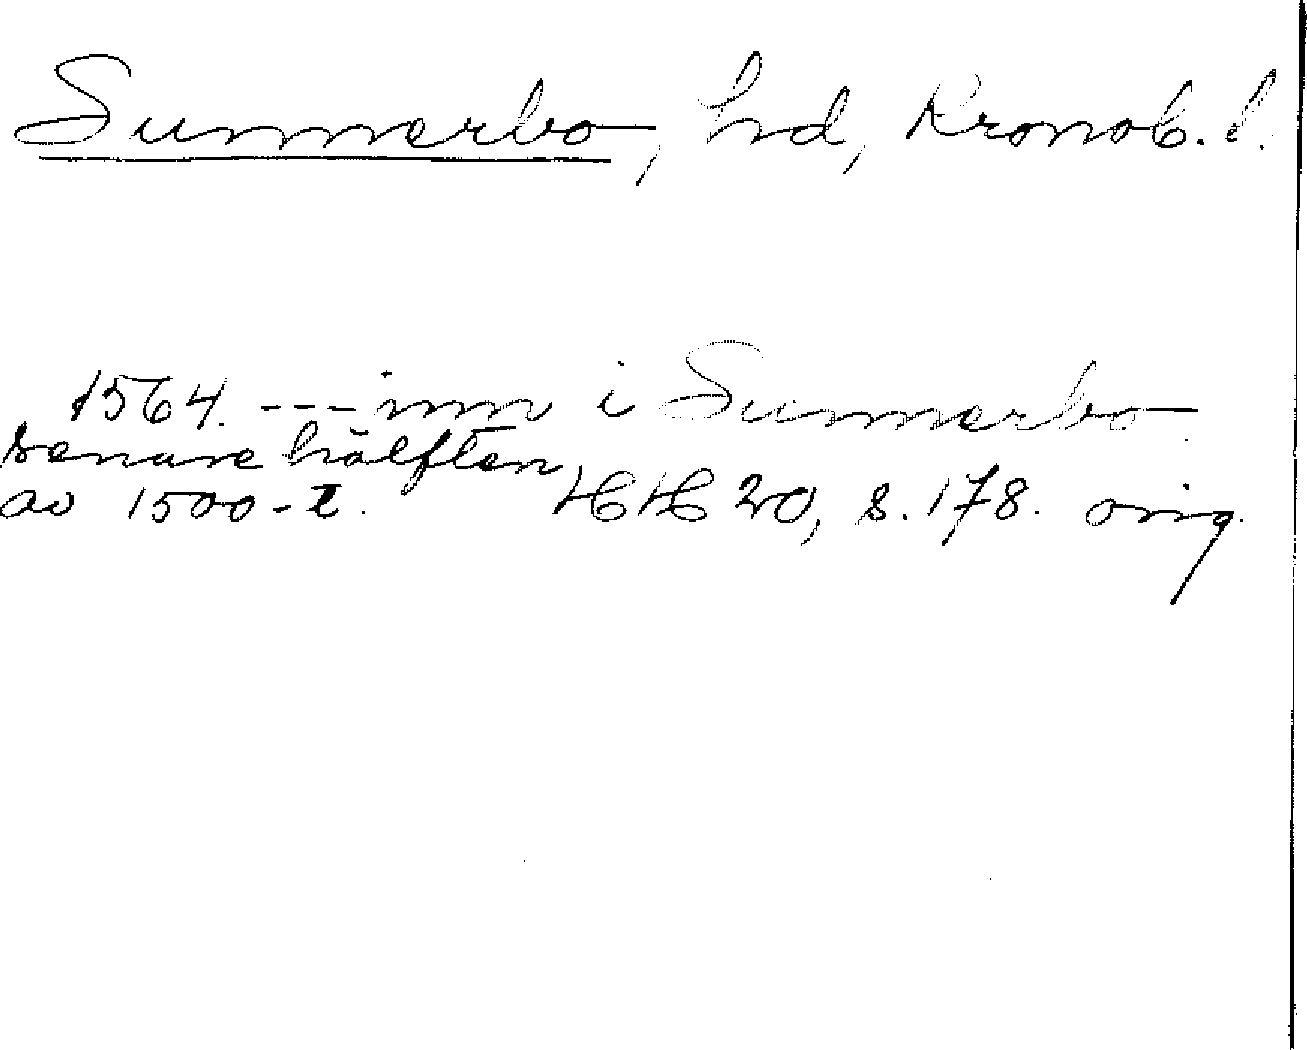 Sunnerbo, hd, Kronob. l.
1564. --- inn i Sunnerbo.
senare hälften
av 1500-t. HH 20, s. 178. orig.